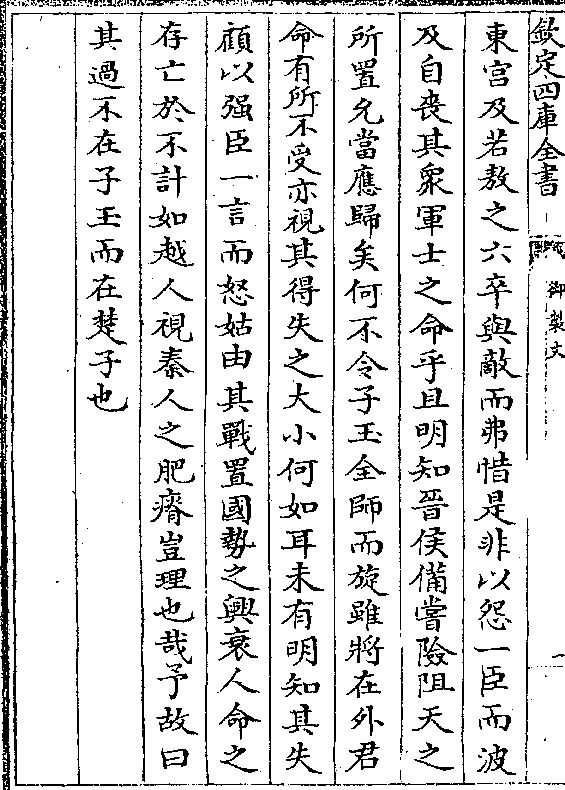 欽定四庫全書
御製文
一
東宮及若敖之六卒與敵而弗惜是非以怨一臣而波
及自喪其衆軍士之命乎且明知晉侯備嘗險阻天之
所置允當應歸矣何不令子玉全師而旋雖將在外君
命有所不受亦視其得失之大小何如耳未有明知其失
顧以强臣一言而怒姑由其戰置國勢之興衰人命之
存亡於不計如越人視秦人之肥瘠豈理也哉予故曰
其過不在子玉而在楚子也